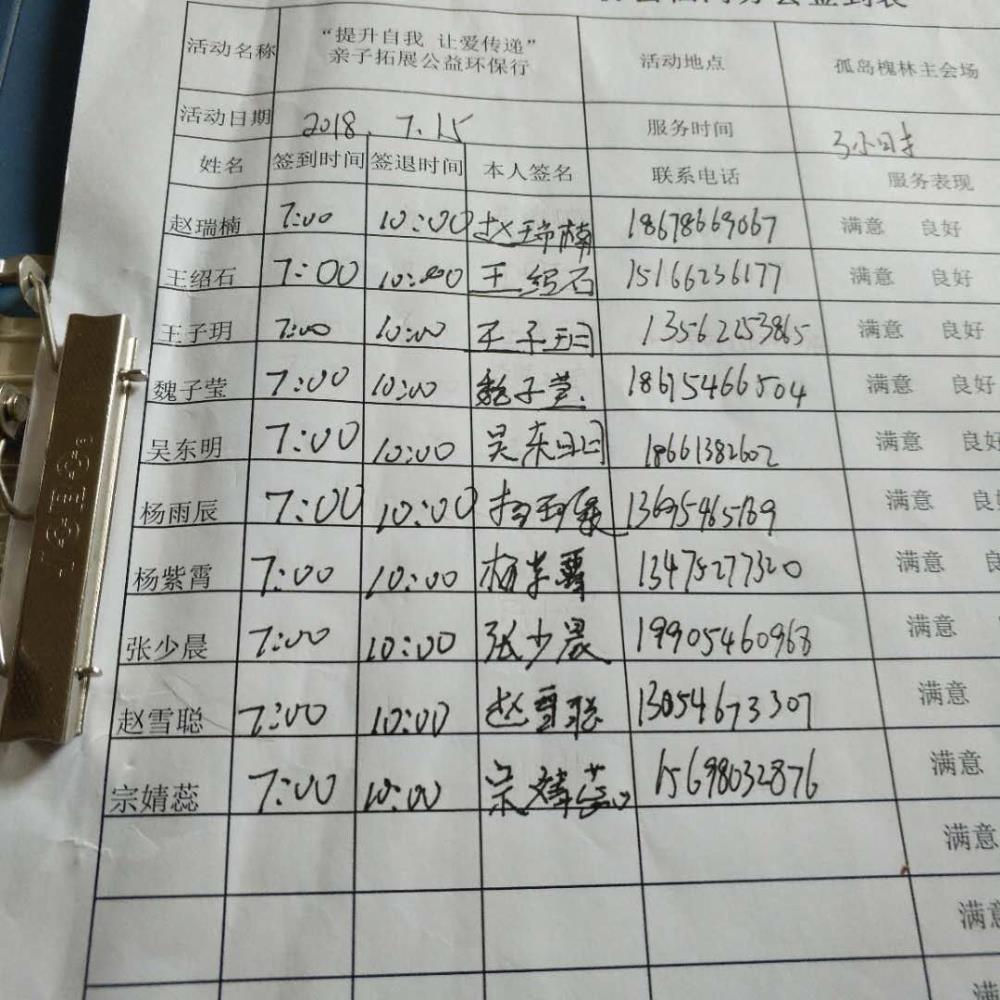 签到表
活动名称 “提升自我 让爱传递” 亲子拓展公益环保行 活动地点 孤岛槐林主会场
活动日期 2018.7.15 服务时间 3小时
姓名 签到时间 签退时间 本人签名 联系电话 服务表现
赵瑞楠 7:00 10:00 赵瑞楠 18678669067 满意 良好
王绍石 7:00 10:00 王绍石 15166236177 满意 良好
王子玥 7:00 10:00 王子玥 13562253865 满意 良好
魏子莹 7:00 10:00 魏子莹 18615466504 满意 良好
吴东明 7:00 10:00 吴东明 18661382602 满意 良好
杨雨辰 7:00 10:00 杨雨辰 满意 良
杨紫霄 7:00 10:00 杨紫霄 13475277320 满意 良
张少晨 7:00 10:00 张少晨 19905460968 满意
赵雪聪 7:00 10:00 赵雪聪 13054673307 满意
宗婧蕊 7:00 10:00 宗婧蕊 15698032876 满意
满意
满意
满